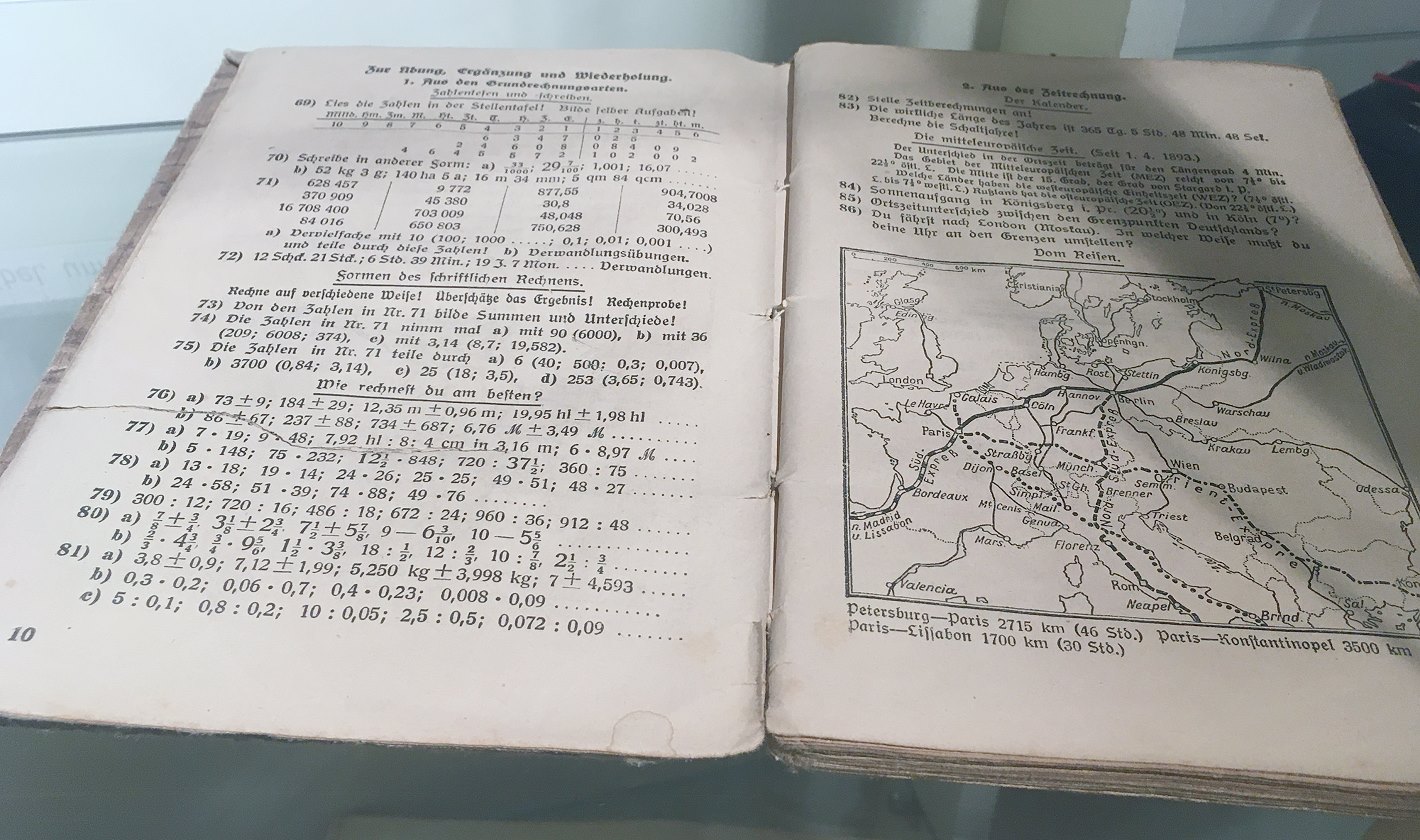 Zur Übung, Ergänzung und Wiederholung.
1. Aus den Grundrechnungsarten.
Zahlenlesen und -schreiben.
69) Lies die Zahlen in der Stellentafel! Bilde selber Aufgaben!
10 9 8 7 6 5 4 3 2 1 1 2 3 4 5 6
70) Schreibe in anderer Form: a) 33/1000; 29 7/100; 1,001; 16,07 ......
b) 52 kg 3 g; 140 ha 5 a; 16 m 34 mm; 5 qm 84 qcm ......
71) 628 457 9 772 877,55 904,7008
370 909 45 380 30,8 34,028
16 708 400 703 009 48,048 70,56
84 016 650 803 750,628 300,493
a) Vervielfache mit 10 (100; 1000 .....; 0,1; 0,01; 0,001 ....)
und teile durch diese Zahlen! b) Verwandlungsübungen.
72) 12 Schck. 21 Stck.; 6 Std. 39 Min.; 19 J. 7 Mon. .... Verwandlungen.
Formen des schriftlichen Rechnens.
Rechne auf verschiedene Weise! Überschätze das Ergebnis! Rechenprobe!
73) Von den Zahlen in Nr. 71 bilde Summen und Unterschiede!
74) Die Zahlen in Nr. 71 nimm mal a) mit 90 (6000), b) mit 36
(209; 6008; 374), c) mit 3,14 (8,7; 19,582).
75) Die Zahlen in Nr. 71 teile durch a) 6 (40; 500; 0,3; 0,007),
b) 3700 (0,84; 3,14), c) 25 (18; 3,5), d) 253 (3,65; 0,743).
Wie rechnest du am besten?
76) a) 73 ± 9; 184 ± 29; 12,35 m ± 0,96 m; 19,95 hl ± 1,98 hl ......
b) 86 ± 67; 237 ± 88; 734 ± 687; 6,76 ℳ ± 3,49 ℳ .........
77) a) 7 · 19; 9 · 48; 7,92 hl : 8; 4 cm in 3,16 m; 6 · 8,97 ℳ .....
b) 5 · 148; 75 · 232; 12½ · 848; 720 : 37½; 360 : 75 ........
78) a) 13 · 18; 19 · 14; 24 · 26; 25 · 25; 49 · 51; 48 · 27 ........
b) 24 · 58; 51 · 39; 74 · 88; 49 · 76 ........
79) 300 : 12; 720 : 16; 486 : 18; 672 : 24; 960 : 36; 912 : 48 ......
80) a) 7/8 ± 3/4, 3 1/8 ± 2 3/4, 7 1/2 ± 5 7/8, 9 — 6 3/10, 10 — 5 5/6 ..........
b) 2/3 · 4 3/4, 3/4 · 9 5/6, 1 1/2 · 3 3/8, 18 : 1/2, 12 : 2/3, 10 : 7/8, 2 1/2 : 3/4 ........
81) a) 3,8 ± 0,9; 7,12 ± 1,99; 5,250 kg ± 3,998 kg; 7 ± 4,593 .....
b) 0,3 · 0,2; 0,06 · 0,7; 0,4 · 0,23; 0,008 · 0,09 ...........
c) 5 : 0,1; 0,8 : 0,2; 10 : 0,05; 2,5 : 0,5; 0,072 : 0,09 .......
10
2. Aus der Zeitrechnung.
Der Kalender.
82) Stelle Zeitberechnungen an!
83) Die wirkliche Länge des Jahres ist 365 Tg. 5 Std. 48 Min. 48 Sek.
Berechne die Schaltjahre!
Die mitteleuropäische Zeit. (Seit 1. 4. 1893.)
Der Unterschied in der Ortszeit beträgt für den Längengrad 4 Min.
Das Gebiet der Mitteleuropäischen Zeit (MEZ) reicht von 7½° bis
22½° östl. L. Die Mitte ist der 15. Grad, der Grad von Stargard i. P.
Welche Länder haben die westeuropäische Einheitszeit (WEZ)? (7½° östl.
L. bis 7½° westl. L.) Rußland hat die osteuropäische Zeit (OEZ). (Von 22½° östl. L.)
84) Sonnenaufgang in Königsberg i. Pr. (20½°) und in Köln (7°)?
85) Ortszeitunterschied zwischen den Grenzpunkten Deutschlands?
86) Du fährst nach London (Moskau). In welcher Weise mußt du
deine Uhr an den Grenzen umstellen?
Vom Reisen.
200 400 600 km
Christiania
Stockholm
Petersbg
n. Moskau
Glasg.
Edinbg
Kopenhgn.
Nord-Expreß
Wilna
n. Moskau
u. Wladiwostok
London
Hambg
Rost.
Stettin
Königsbg.
Le Havre
Calais
Cöln
Hannov
Berlin
Warschau
Breslau
Paris
Frankf.
Krakau
Lembg
Straßbg
Süd-Expreß
Dijon
Basel
Münch.
Nord-Süd-Expreß
Wien
Orient-Expreß
Budapest
Odessa
St.Gh.
Semm.
Bordeaux
Simpl.
Brenner
Mt Cenis
Mail.
Triest
n. Madrid
u. Lissabon
Genua
Belgrad
Mars.
Florenz
Valencia
Rom
Neapel
Brind.
Sal.
Kon
Petersburg—Paris 2715 km (46 Std.) Paris—Konstantinopel 3500 km
Paris—Lissabon 1700 km (30 Std.)